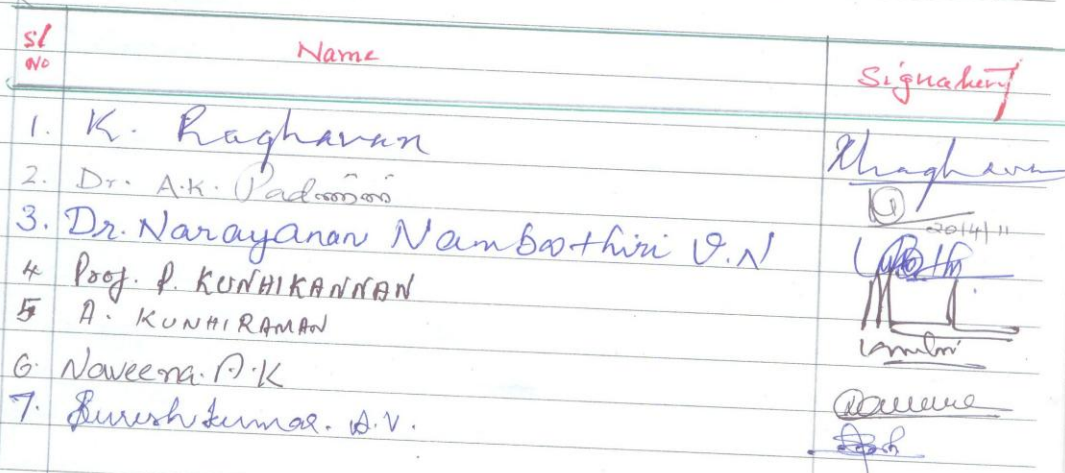 Sl No Name Signatury
1. K. Raghavan Khaghavan
2. Dr. A.K.
20/4/11
3. Dr. Narayanan Namboothiri V.N
4 Prof. P. KUNHIKANNAN
5 A. KUNHIRAMAN
6. Naveena. A.K
7. Sureshkumar. A.V.